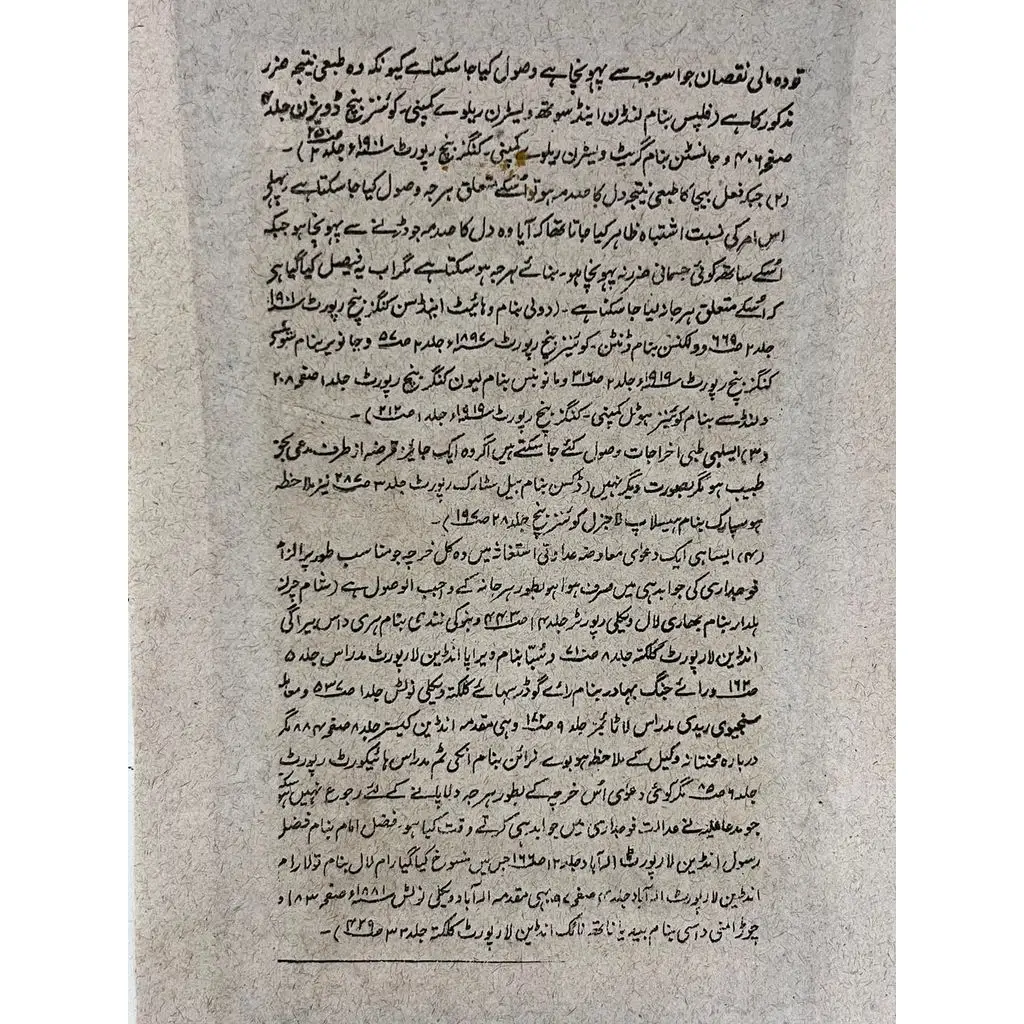 تو وہ مالی نقصان جو اسوجہ سے پہونچا ہے وصول کیا جا سکتا ہے کیونکہ وہ طبعی نتیجہ ضرر
مذکور کا ہے (فلپس بنام لنڈن اینڈ سوتھ ویسٹرن ریلوے کمپنی۔ کوئنز بنچ ڈویژن جلد ۴
صفحہ ۴۰۶ و جانسٹن بنام گریٹ ویسٹرن ریلوے کمپنی۔ کنگز بنچ رپورٹ سنہ ۱۹۰۱ء جلد ۲ صـ ۲۵۰)۔
(۲) جبکہ فعل بیجا کا طبعی نتیجہ دل کا صدمہ ہو تو اُسکے متعلق ہرجہ وصول کیا جا سکتا ہے پہلے
اس امر کی نسبت اشتباہ ظاہر کیا جاتا تھا کہ آیا وہ دل کا صدمہ جو ڈرنے سے پہونچا ہو جبکہ
اُسکے ساتھ کوئی جسمانی ضرر نہ پہونچا ہو۔ بنائے ہرجہ ہو سکتا ہے مگر اب یہ فیصل کیا گیا ہے
کہ اُسکے متعلق ہرجانہ لیا جا سکتا ہے۔ (دولی بنام وہائیٹ اینڈ سن کنگز بنچ رپورٹ سنہ ۱۹۰۱
جلد ۲ صـ ۶۶۹ و ولکنسن بنام ڈنٹن۔ کوئینز بنچ رپورٹ سنہ ۱۸۹۷ء جلد ۲ صـ ۵۷ و جانویر بنام
کنگز بنچ رپورٹ سنہ ۱۹۱۹ء جلد ۲ صـ ۳۱۶ و بنام لیون کنگز بنچ رپورٹ جلد ۱ صفحہ ۲۰۸
بنام کوئینز ہوٹل کمپنی۔ کنگز بنچ رپورٹ سنہ ۱۹۱۹ء جلد ۱ صـ ۲۱۲)۔
(۳) ایسے ہی طبی اخراجات وصول کئے جا سکتے ہیں اگر وہ ایک جائز قرضہ از طرف مدعی بحق
طبیب ہو مگر بصورت دیگر نہیں (ڈکسن بنام بیل سٹارک رپورٹ جلد ۳ صـ ۲۸۷ نیز ملاحظہ
ہو سپارک بنام ہیسلاپ جنرل کوئنز بنچ جلد ۲۸ صـ ۱۹۷)۔
(۴) ایسا ہی ایک دعوٰی معاوضہ عداوتی استغاثہ میں وہ کل خرچہ جو مناسب طور پر الزام
فوجداری کی جوابدہی میں صرف ہوا ہو بطور ہرجانہ کے واجب الوصول ہے (
بنام بہاری لال ویکلی رپورٹر جلد ۱۴ صـ ۴۴۳ و بنو کی نندی بنام ہری داس بیراگی
انڈین لا رپورٹ کلکتہ جلد ۸ صـ ۷۱ و بنام ویراپا انڈین لا رپورٹ مدراس جلد ۵
صـ ۱۶۲ و رائے جنگ بہادر بنام رائے گوڈر سہائے کلکتہ ویکلی نوٹس جلد ۱ صـ ۵۳۷ و
سنجیوی ریڈی مدراس لا ٹائمز جلد ۹ صـ ۱۷۲ وہی مقدمہ انڈین کیسز جلد ۸ صفحہ ۸۸۴ مگر
دربارہ محنتانہ وکیل کے ملاحظہ ہو بوے نرائن بنام مدراس ہائیکورٹ رپورٹ
جلد ۶ صـ ۸۵ مگر کوئی دعوٰی اُس خرچہ کے بطور ہرجہ دلا پانے کے لئے رجوع نہیں ہو سکتا
جو مدعاعلیہ نے عدالت فوجداری میں جوابدہی کرتے وقت کیا ہو۔ فضل امام بنام فضل
رسول انڈین لا رپورٹ الہ آباد جلد ۱۲ صـ ۱۶۶ جس میں منسوخ کیا گیا رام لال بنام تولا رام
انڈین لا رپورٹ الہ آباد جلد ۴ صفحہ ۹۷ یہی مقدمہ الہ آباد ویکلی نوٹس سنہ ۱۸۸۱ء صفحہ ۸۳) و
چوڑامنی داسی بنام بیدیا ناتھ نائک انڈین لا رپورٹ کلکتہ جلد ۳۲ صـ ۴۲۹)۔